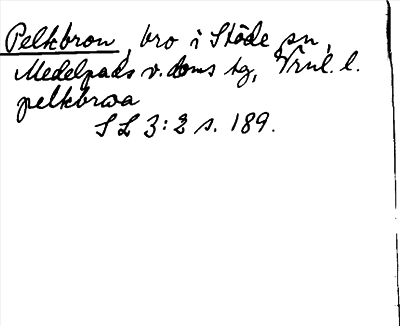 Pelkbron, bro i Stöde sn,
Medelpads v. doms tg, Vrul. l.
pelkbrwa
SL 3:2 s. 189.